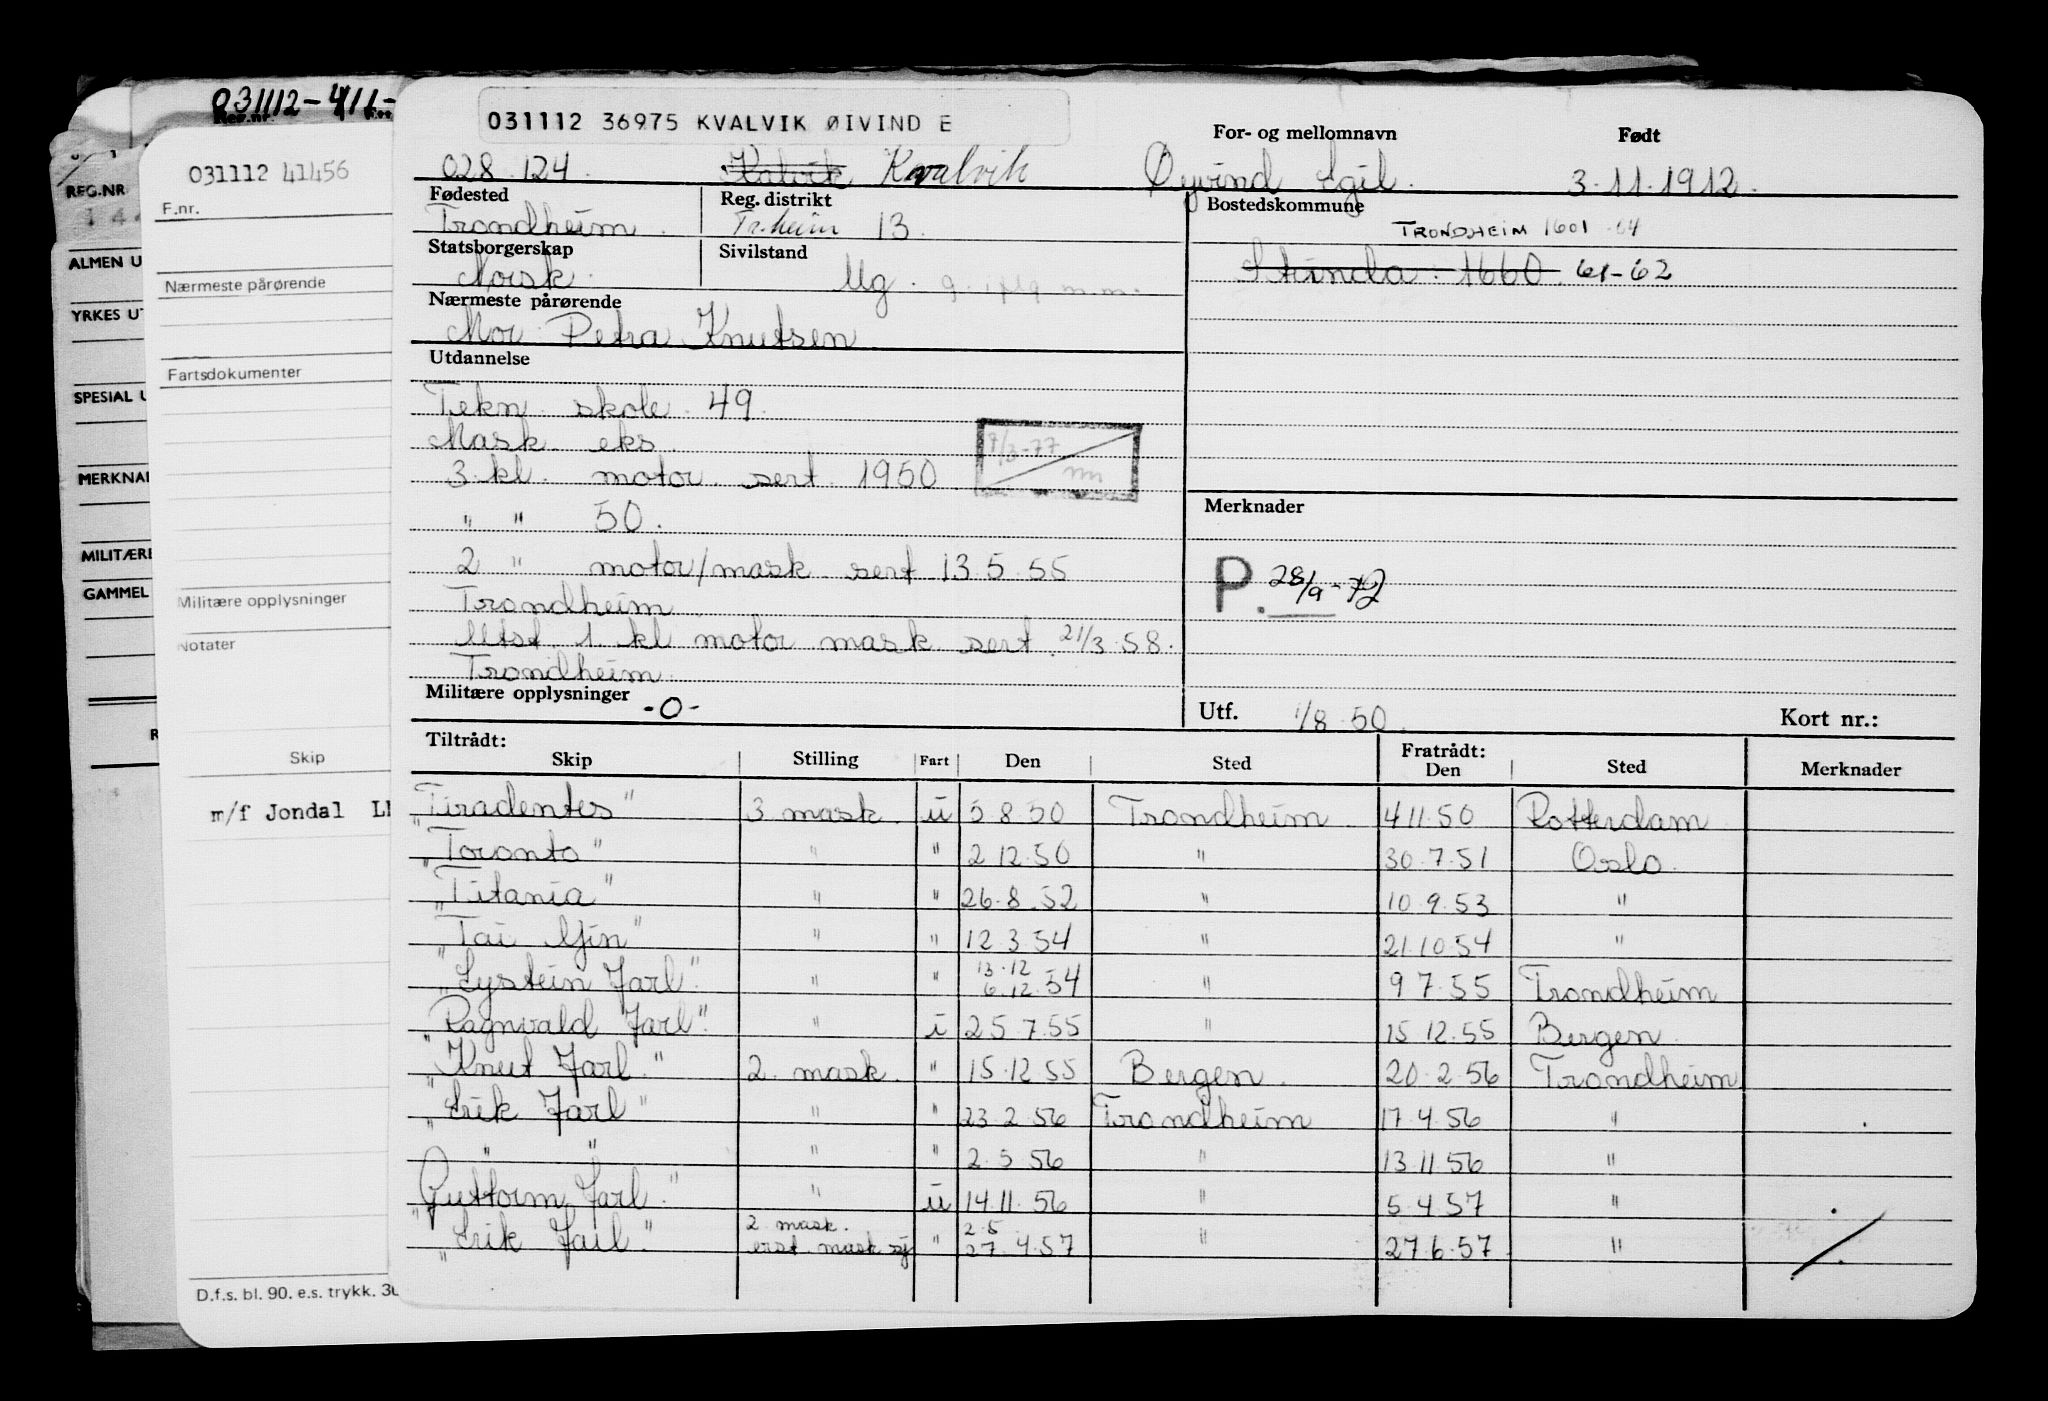 031112-411-
031112 41456
F.nr.
Nærmeste pårørende
Fartsdokumenter
Militære opplysninger
Notater
Skip
m/f Jondal
D.f.s. bl. 90. e.s. trykk.
REG.NR
ALMEN U
YRKES UT
SPESIAL U
MERKNA
MILITÆRE
GAMMEL
031112 36975 KVALVIK ØIVIND E
For- og mellomnavn Født
028.124. Kalvik Kvalvik Øyvind Egil. 3.11.1912.
Fødested Reg. distrikt Bostedskommune
Trondheim. Tr.heim 13. TRONDHEIM 1601 -64
Statsborgerskap Sivilstand
Norsk. Ug. Strinda: 1660. 61-62
Nærmeste pårørende
Mor: Petra Knutsen
Utdannelse
Tekn. skole. 49.
Mask. eks.
9/3-77
3. kl. motor sert. 1950
" " 50.
2 " motor/mask. sert 13.5.55
Trondheim
Utst. 1 kl motor mask sert. 21/3.58.
Trondheim.
Merknader
P. 28/9-72
Militære opplysninger -0-
Utf. 1/8.50. Kort nr.:
Tiltrådt: Fratrådt:
Skip Stilling Fart Den Sted Den Sted Merknader
"Tiradentes" 3 mask. u 5.8.50 Trondheim 4.11.50 Rotterdam
"Toronto" " " 2.12.50 " 30.7.51 Oslo.
"Titania" " " 26.8.52 " 10.9.53 "
"Tai Yin" " " 12.3.54 " 21.10.54 "
13.12
"Eystein Jarl." " " 6.12.54 " 9.7.55 Trondheim
"Ragnvald Jarl". " i 25.7.55 " 15.12.55 Bergen.
"Knut Jarl." 2. mask. " 15.12.55 Bergen. 20.2.56 Trondheim
"Erik Jarl" " " 23.2.56 Trondheim 17.4.56 "
" " " " 2.5.56 " 13.11.56 "
"Guttorm Jarl." " u 14.11.56 " 5.4.57 "
2 mask. 2.5
"Erik Jarl." erst. mask sj " 27.4.57 " 27.6.57 "